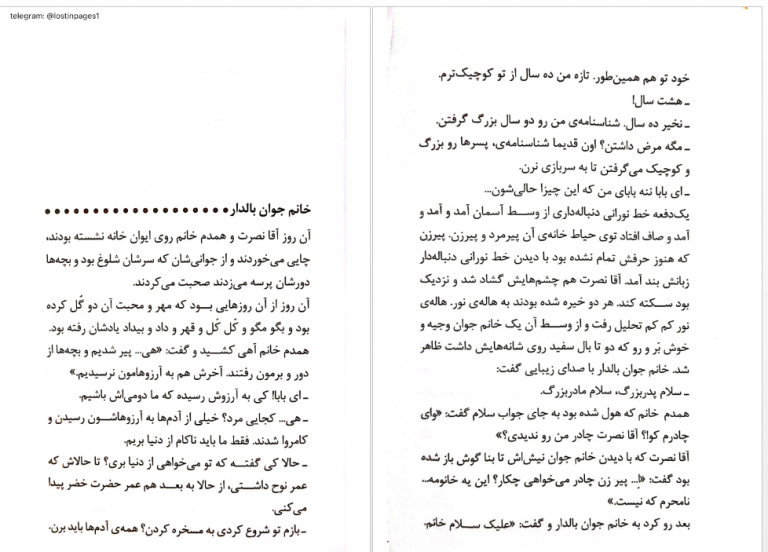 telegram: @lostinpages1
خانم جوان بالدار
آن روز آقا نصرت و همدم خانم روی ایوان خانه نشسته بودند،
چایی می‌خوردند و از جوانی‌شان که سرشان شلوغ بود و بچه‌ها
دورشان پرسه می‌زدند صحبت می‌کردند.
آن روز از آن روزهایی بود که مهر و محبت آن دو گُل کرده
بود و بگو مگو و کَل کَل و قهر و داد و بیداد یادشان رفته بود.
همدم خانم آهی کشید و گفت: «هی... پیر شدیم و بچه‌ها از
دور و برمون رفتند. آخرش هم به آرزوهامون نرسیدیم.»
ـ ای بابا! کی به آرزوش رسیده که ما دومی‌اش باشیم.
ـ هی... کجایی مرد؟ خیلی از آدم‌ها به آرزوهاشون رسیدن و
کامروا شدند. فقط ما باید ناکام از دنیا بریم.
ـ حالا کی گفته که تو می‌خواهی از دنیا بری؟ تا حالاش که
عمر نوح داشتی، از حالا به بعد هم عمر حضرت خضر پیدا
می‌کنی.
ـ بازم تو شروع کردی به مسخره کردن؟ همه‌ی آدم‌ها باید برن.
خود تو هم همین‌طور. تازه من ده سال از تو کوچیک‌ترم.
ـ هشت سال!
ـ نخیر ده سال. شناسنامه‌ی من رو دو سال بزرگ گرفتن.
ـ مگه مرض داشتن؟ اون قدیما شناسنامه‌ی، پسرها رو بزرگ
و کوچیک می‌گرفتن تا به سربازی نرن.
ـ ای بابا ننه بابای من که این چیزا حالی‌شون...
یک‌دفعه خط نورانی دنباله‌داری از وسط آسمان آمد و آمد و
آمد و صاف افتاد توی حیاط خانه‌ی آن پیرمرد و پیرزن. پیرزن
که هنوز حرفش تمام نشده بود با دیدن خط نورانی دنباله‌دار
زبانش بند آمد. آقا نصرت هم چشم‌هایش گشاد شد و نزدیک
بود سکته کند. هر دو خیره شده بودند به هاله‌ی نور. هاله‌ی
نور کم کم تحلیل رفت و از وسط آن یک خانم جوان وجیه و
خوش بَر و رو که دو تا بال سفید روی شانه‌هایش داشت ظاهر
شد. خانم جوان بالدار با صدای زیبایی گفت:
ـ سلام پدربزرگ، سلام مادربزرگ.
همدم خانم که هول شده بود به جای جواب سلام گفت: «وای
چادرم کوا؟ آقا نصرت چادر من رو ندیدی؟»
آقا نصرت که با دیدن خانم جوان نیش‌اش تا بنا گوش باز شده
بود گفت: «اِ... پیر زن چادر می‌خواهی چکار؟ این یه خانومه...
نامحرم که نیست.»
بعد رو کرد به خانم جوان بالدار و گفت: «علیک سلام خانم.